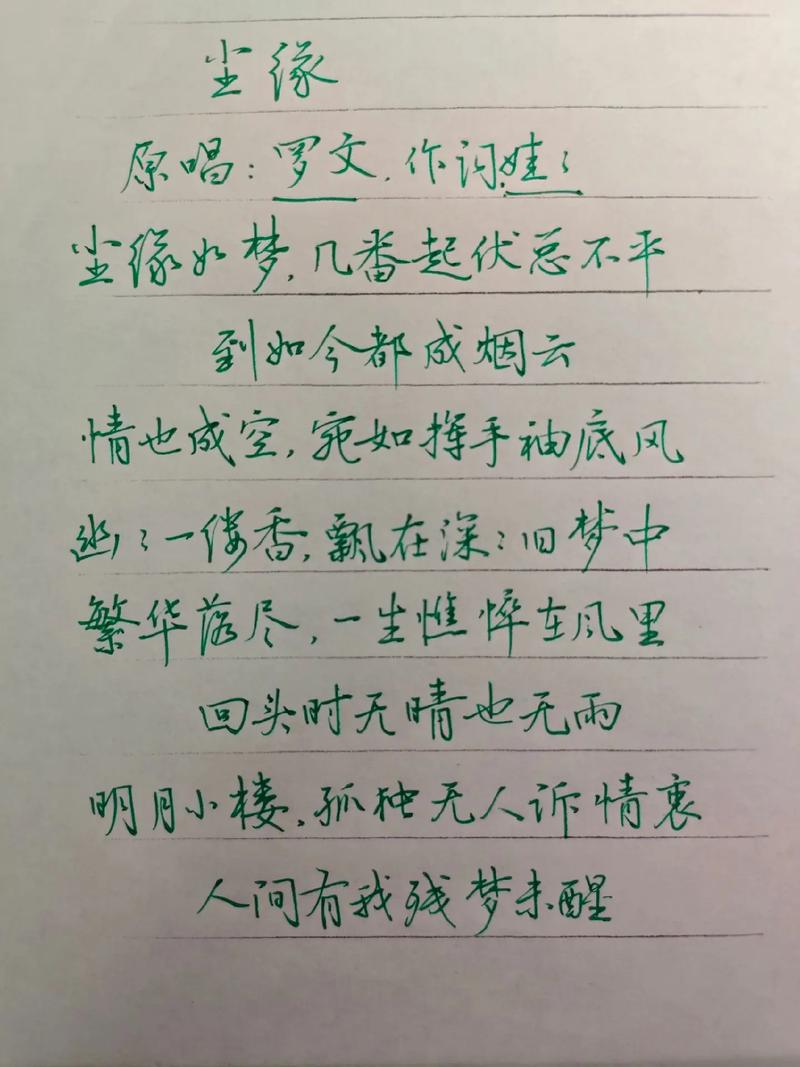 尘缘
原唱：罗文，作词娃：
尘缘如梦，几番起伏总不平
到如今都成烟云
情也成空，宛如挥手袖底风
幽：一缕香，飘在深：旧梦中
繁华落尽，一生憔悴在风里
回头时无晴也无雨
明月小楼，孤独无人诉情衷
人间有我残梦未醒